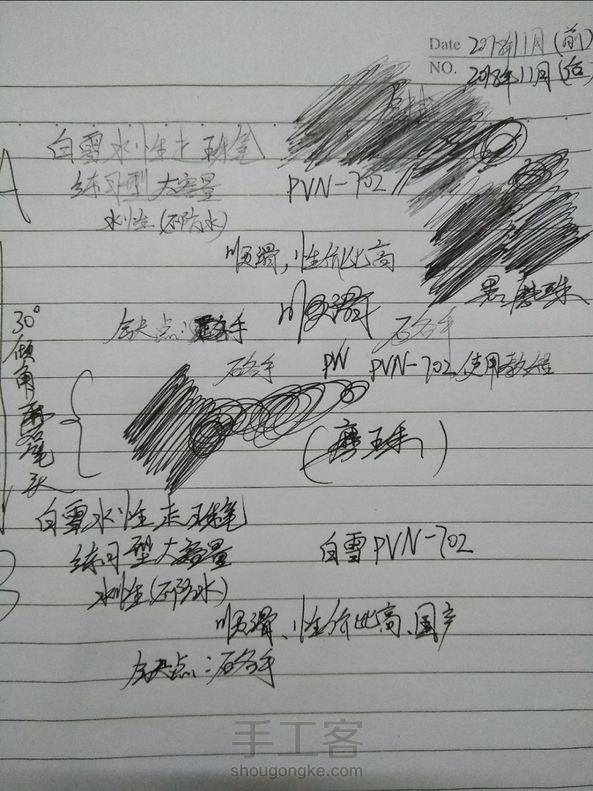 Date 2018年11月(前)
NO. 2018年11月(后)
A
白雪水性走珠笔
练习型大容量 PVN-702
水性(不防水)
顺滑,性价比高
墨磨珠
顺滑
缺点:硌手 硌手
硌手 PW PVN-702使用教程
30°倾角 磨笔尖
(磨珠)
白雪水性走珠笔
练习型大容量 白雪PVN-702
水性(不防水)
顺滑、性价比高、国产
缺点:硌手
B
手工客
shougongke.com